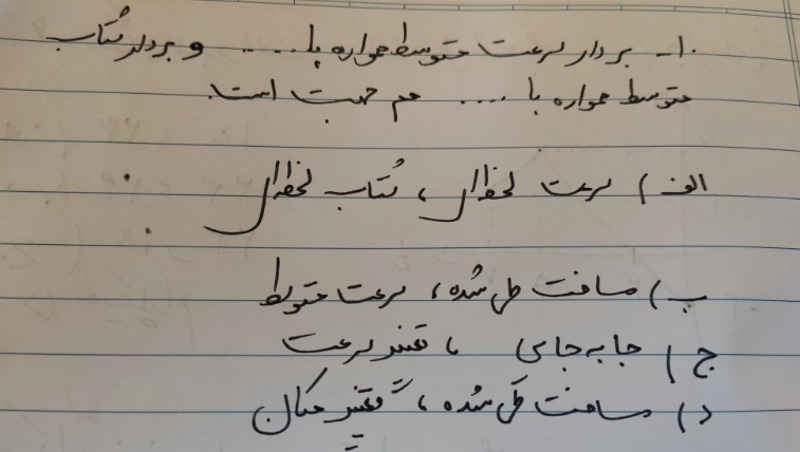 ۱۰- بردار سرعت متوسط همواره با .... و بردار شتاب
متوسط همواره با .... هم جهت است.
الف) سرعت لحظه‌ای ، شتاب لحظه‌ای
ب) مسافت طی شده ، سرعت متوسط
ج) جابه‌جایی ، تغییر سرعت
د) مسافت طی شده ، تغییر مکان